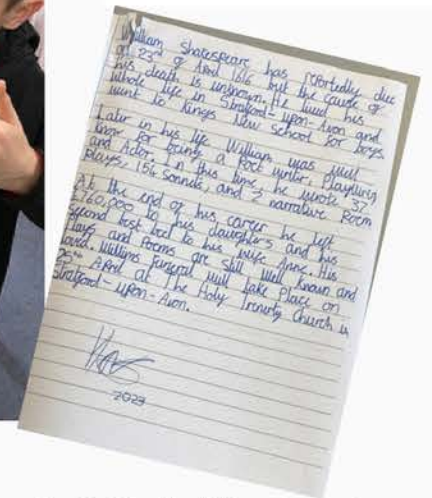 William Shakespeare has reportedly died
on 23rd of April 1616 but the cause of
his death is unknown. He lived his
whole life in Stratford-upon-Avon and
went to Kings New School for boys.
Later in his life William was well
know for being a Poet writer, Playwrig
and Actor. In this time he wrote 37
Plays, 154 sonnets, and 2 narrative Poem
At the end of his career he left
£760,000 to his daughters and his
second best bed to his wife Anne. His
Plays and Poems are still well known and
loved. Williams funeral will take Place on
25th April at The Holy Trinity Church in
Stratford-upon-Avon.
2023